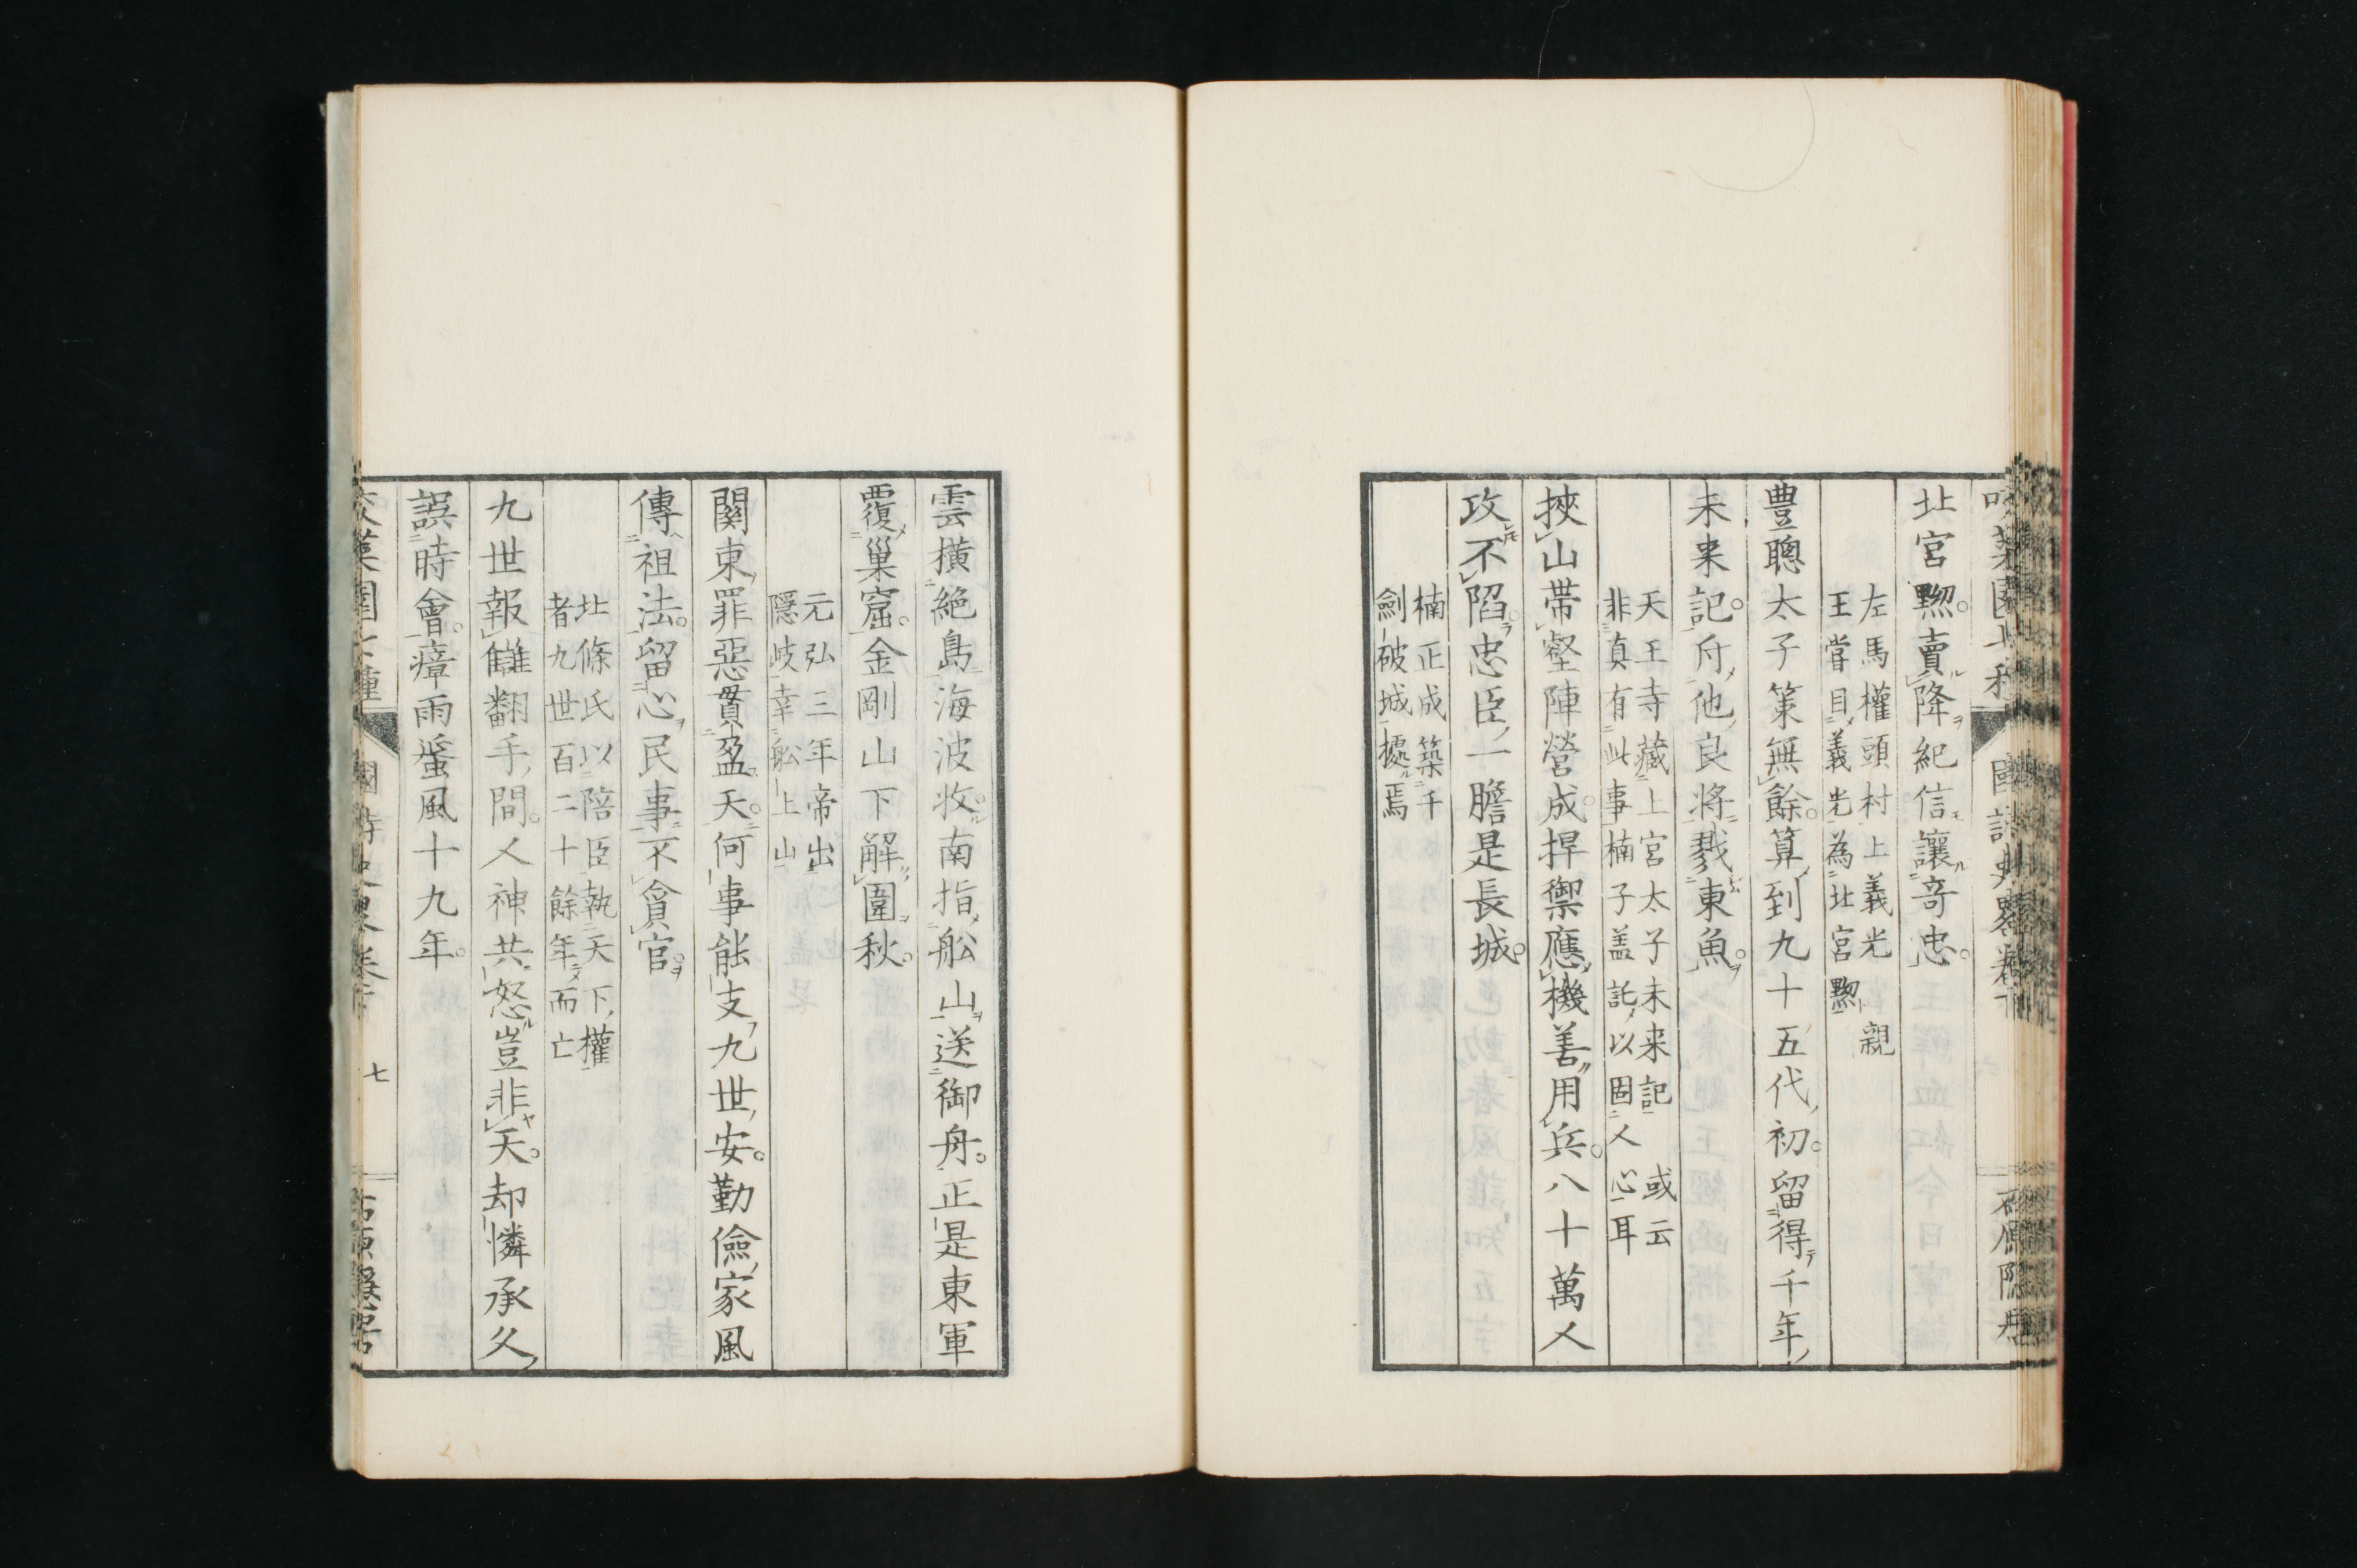 北宮黙。賣降紀信讓奇忠。
左馬權頭村上義光 親
王嘗目義光為北宮黙
豊聰太子策無餘。算到九十五代初。留得千年
未来記。付他良將戮東魚。
天王寺藏上宮太子未来記 或云
非真有此事楠子盖託以固人心耳
挾山帶壑陣營成。捍禦應機善用兵。八十萬人
攻不陷。忠臣一膽是長城。
楠正成築千
劍破城據焉
雲橫絶島海波收。南指舩山送御舟。正是東軍
覆巢窟。金剛山下解圍秋。
元弘三年帝出
隱岐幸舩上山
関東罪惡貫盈天。何事能支九世安。勤儉家風
傳祖法。留心民事不貪官。
北條氏以陪臣執天下權
者九世百二十餘年而亡
九世報讎翻手間。人神共怒豈非天。却憐承久
誤時會。瘴雨蜑風十九年。
七